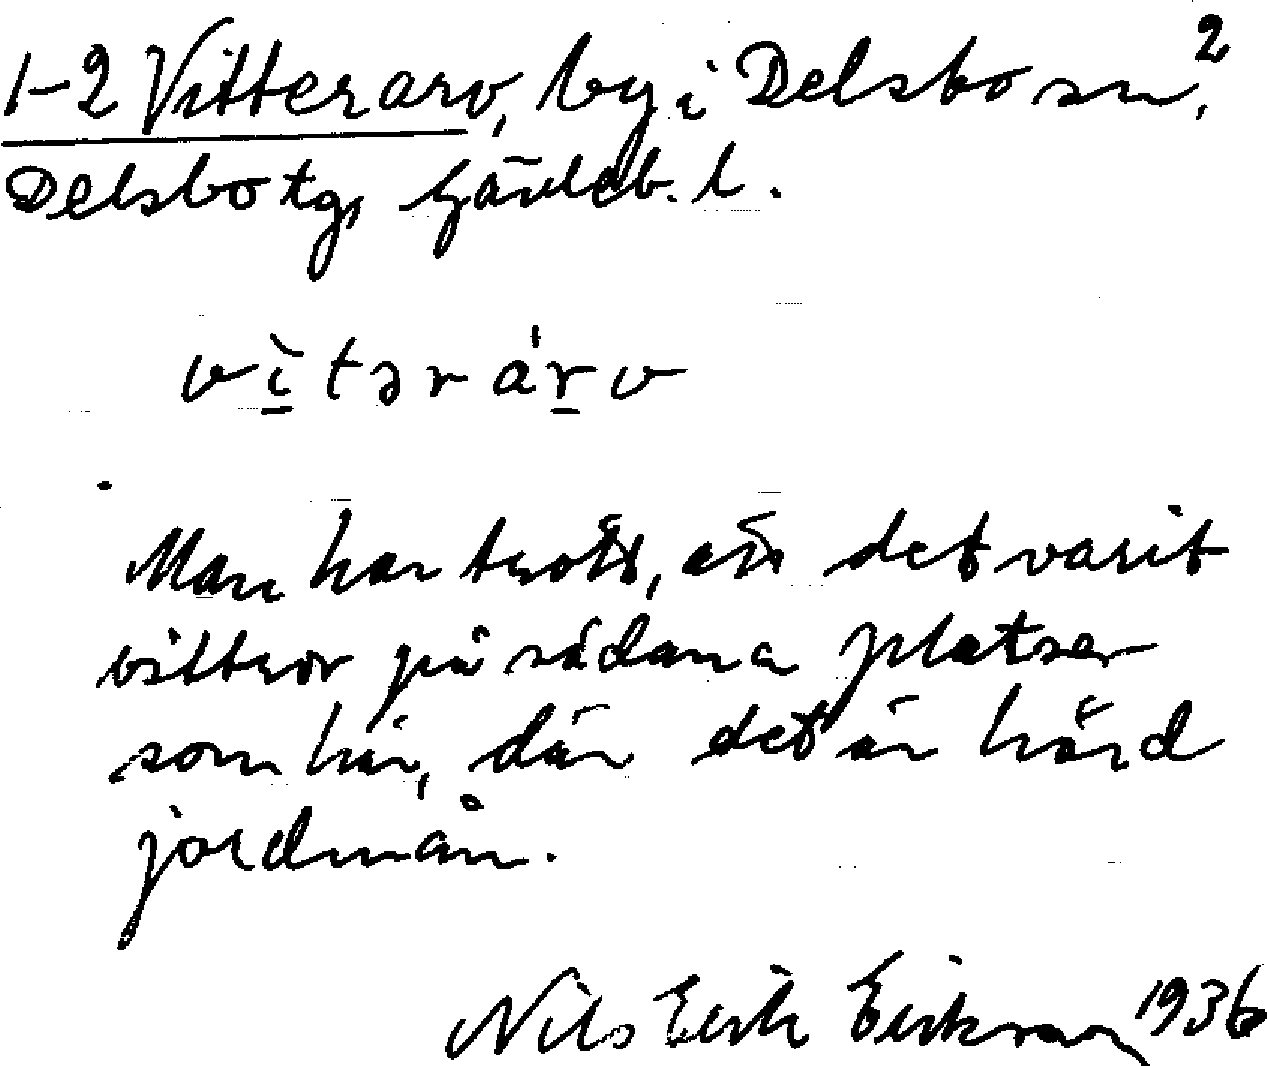 1-2 Vitterarv, by i Delsbo sn,²
Delsbo tg, Gävleb. l.
vı̇̀tərárv
Man har trott, att det varit
vittror på sådana platser
som här, där det är hård
jordmån.
Nils Erik Erikson 1936